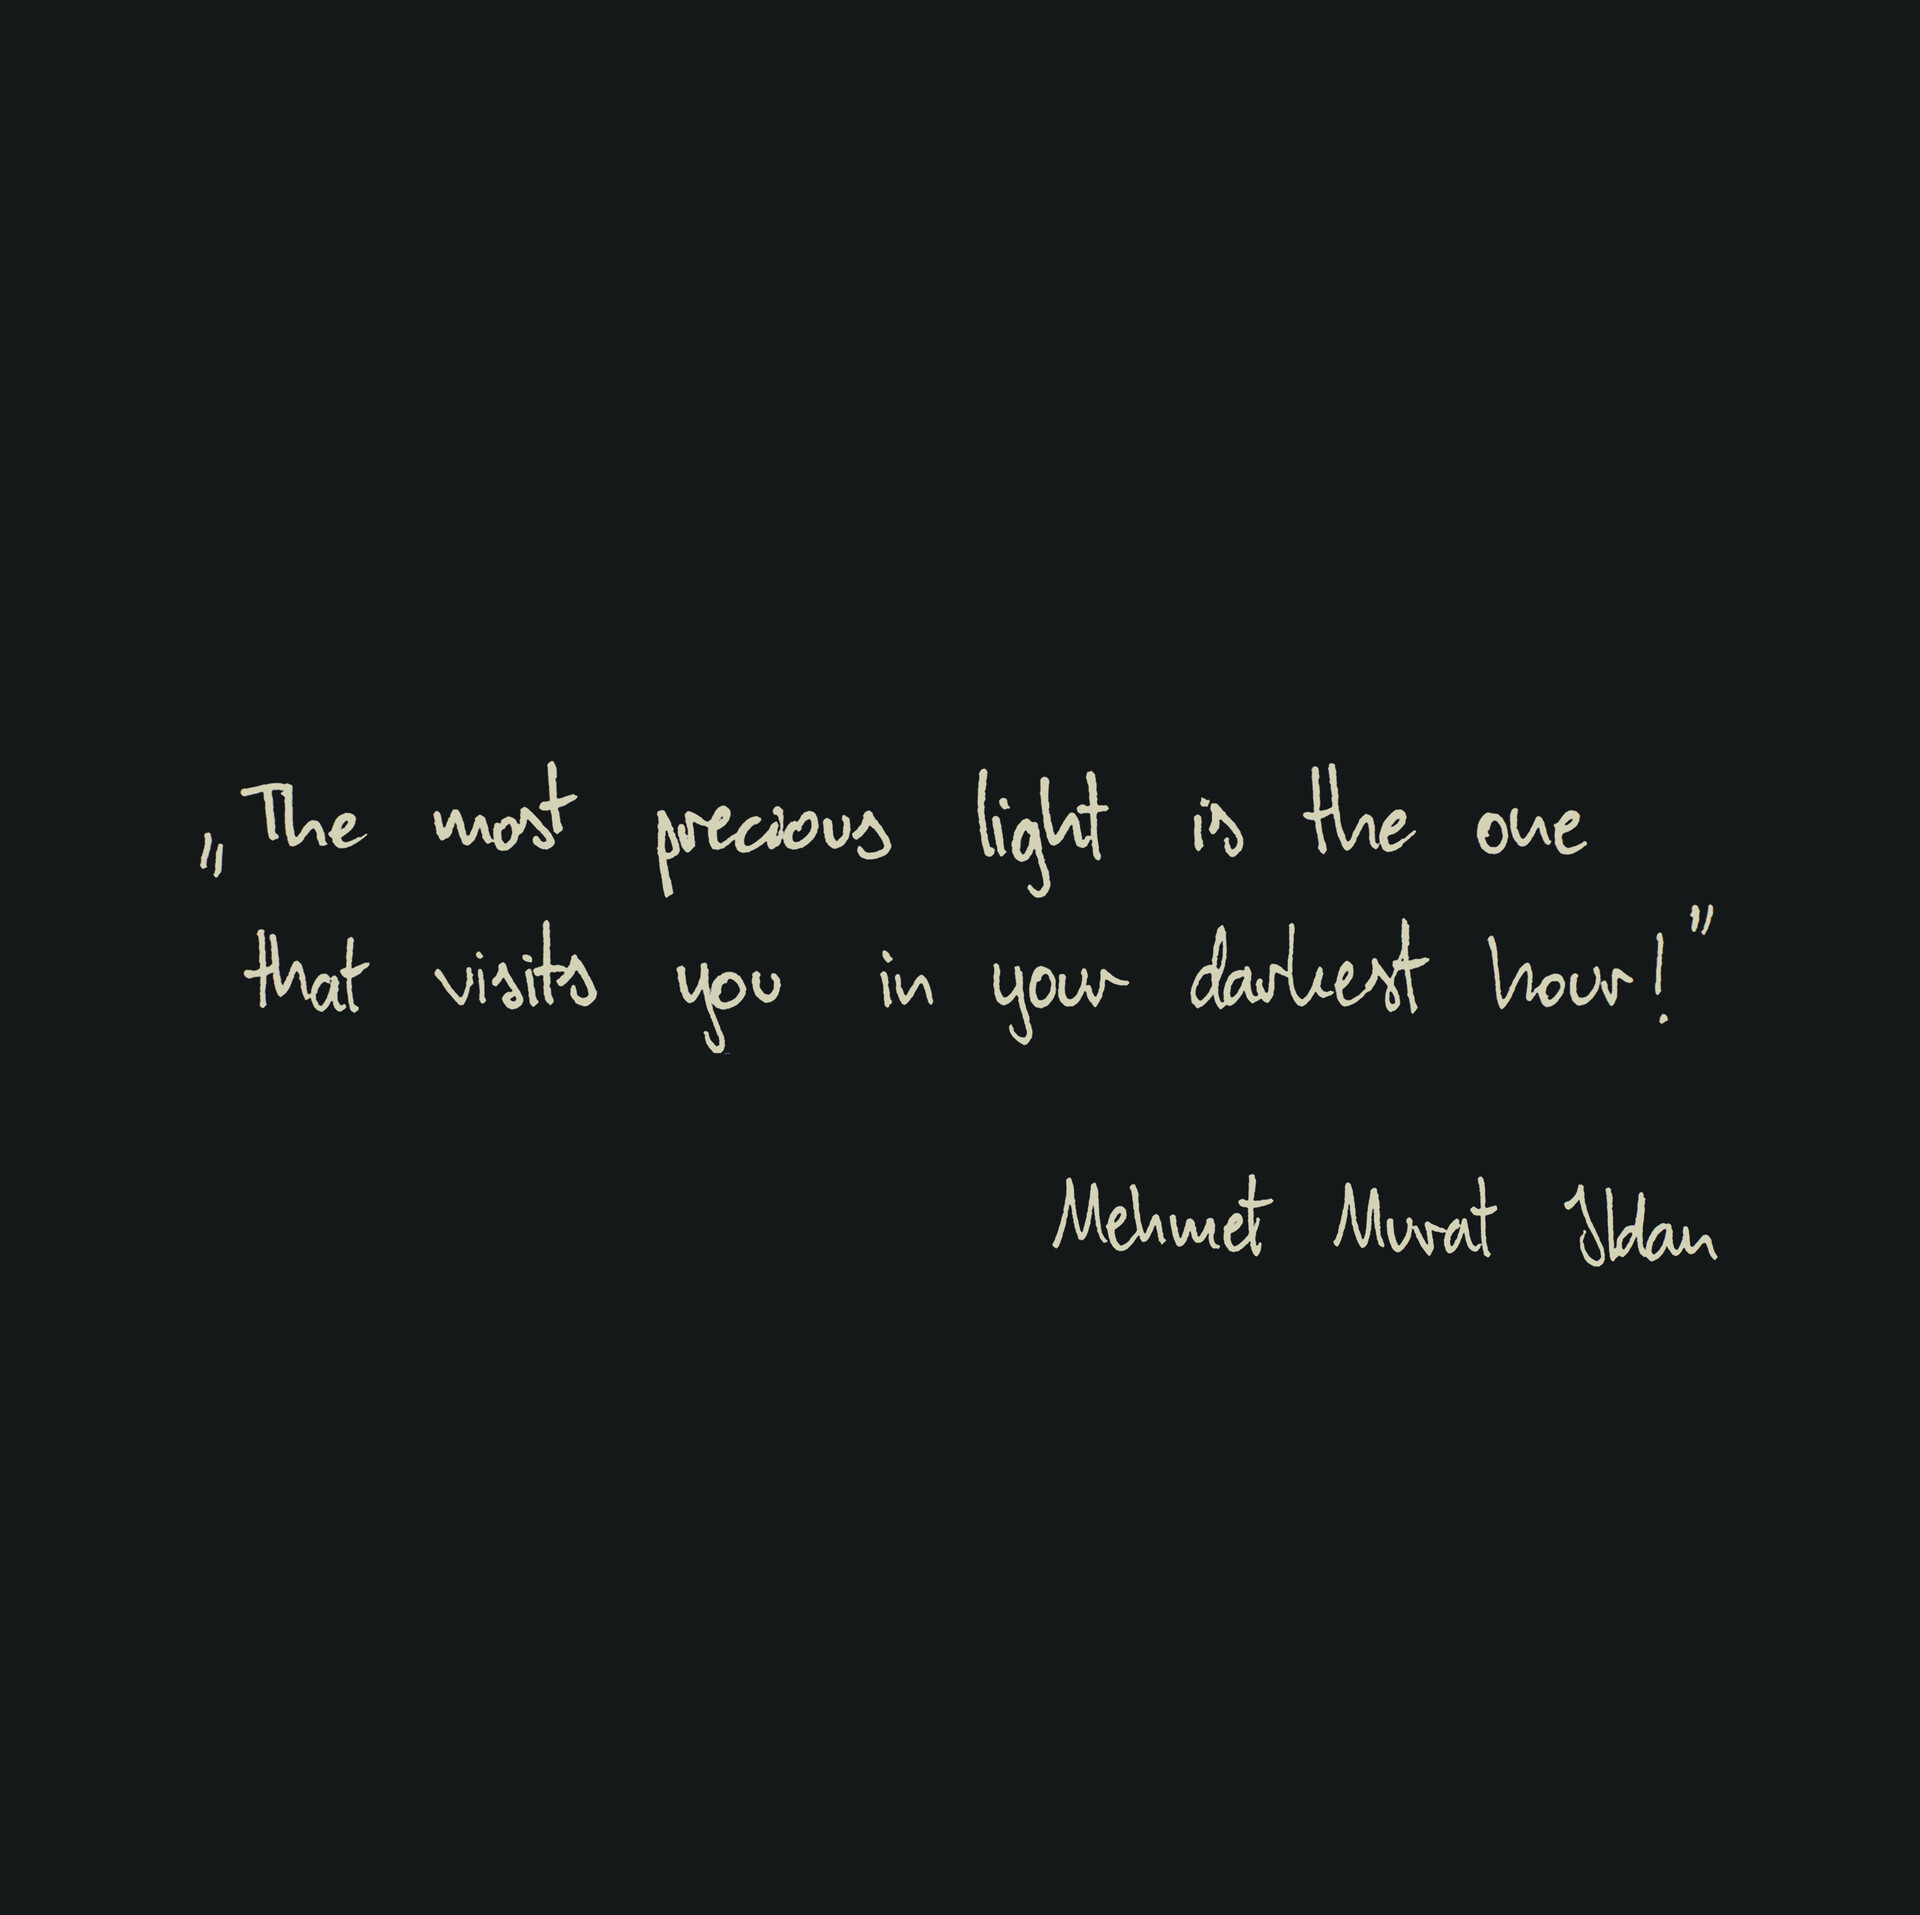 „The most precious light is the one
that visits you in your darkest hour!”
Mehmet Murat Ildan